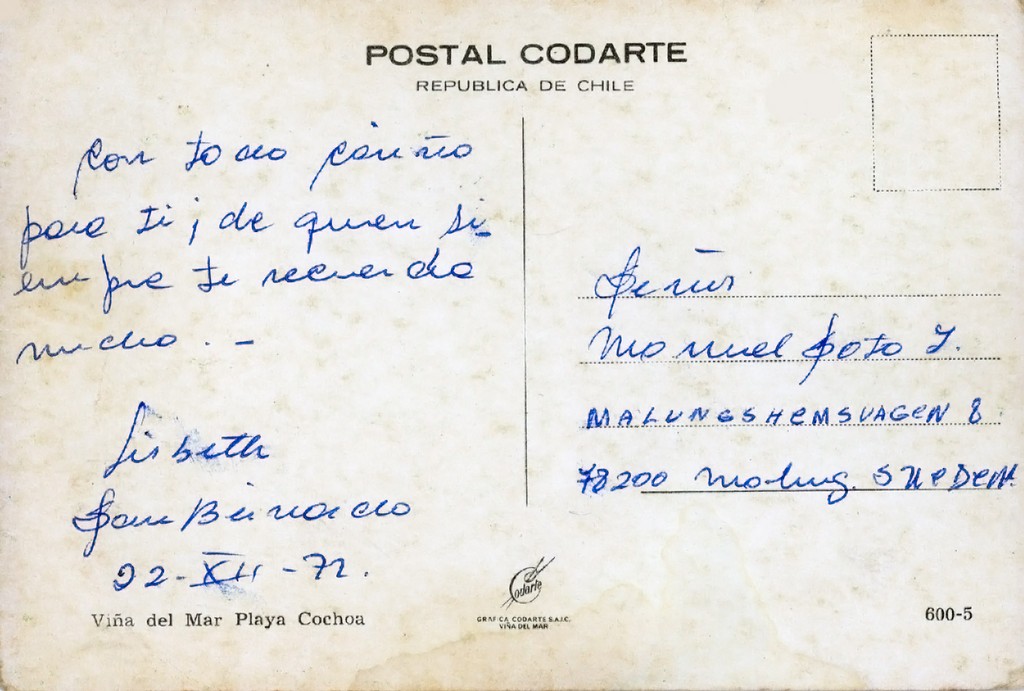 POSTAL CODARTE
REPUBLICA DE CHILE
Con todo cariño
para ti ; de quien si-
empre te recuerda
mucho . -
Lisbeth
San Bernardo
22-XII-72.
Viña del Mar Playa Cochoa
Señor
Manuel Soto I.
MALUNGSHEMSVAGEN 8
78200 Malung. SWEDEN.
Codarte
GRAFICA CODARTE S.A.I.C.
VIÑA DEL MAR
600-5